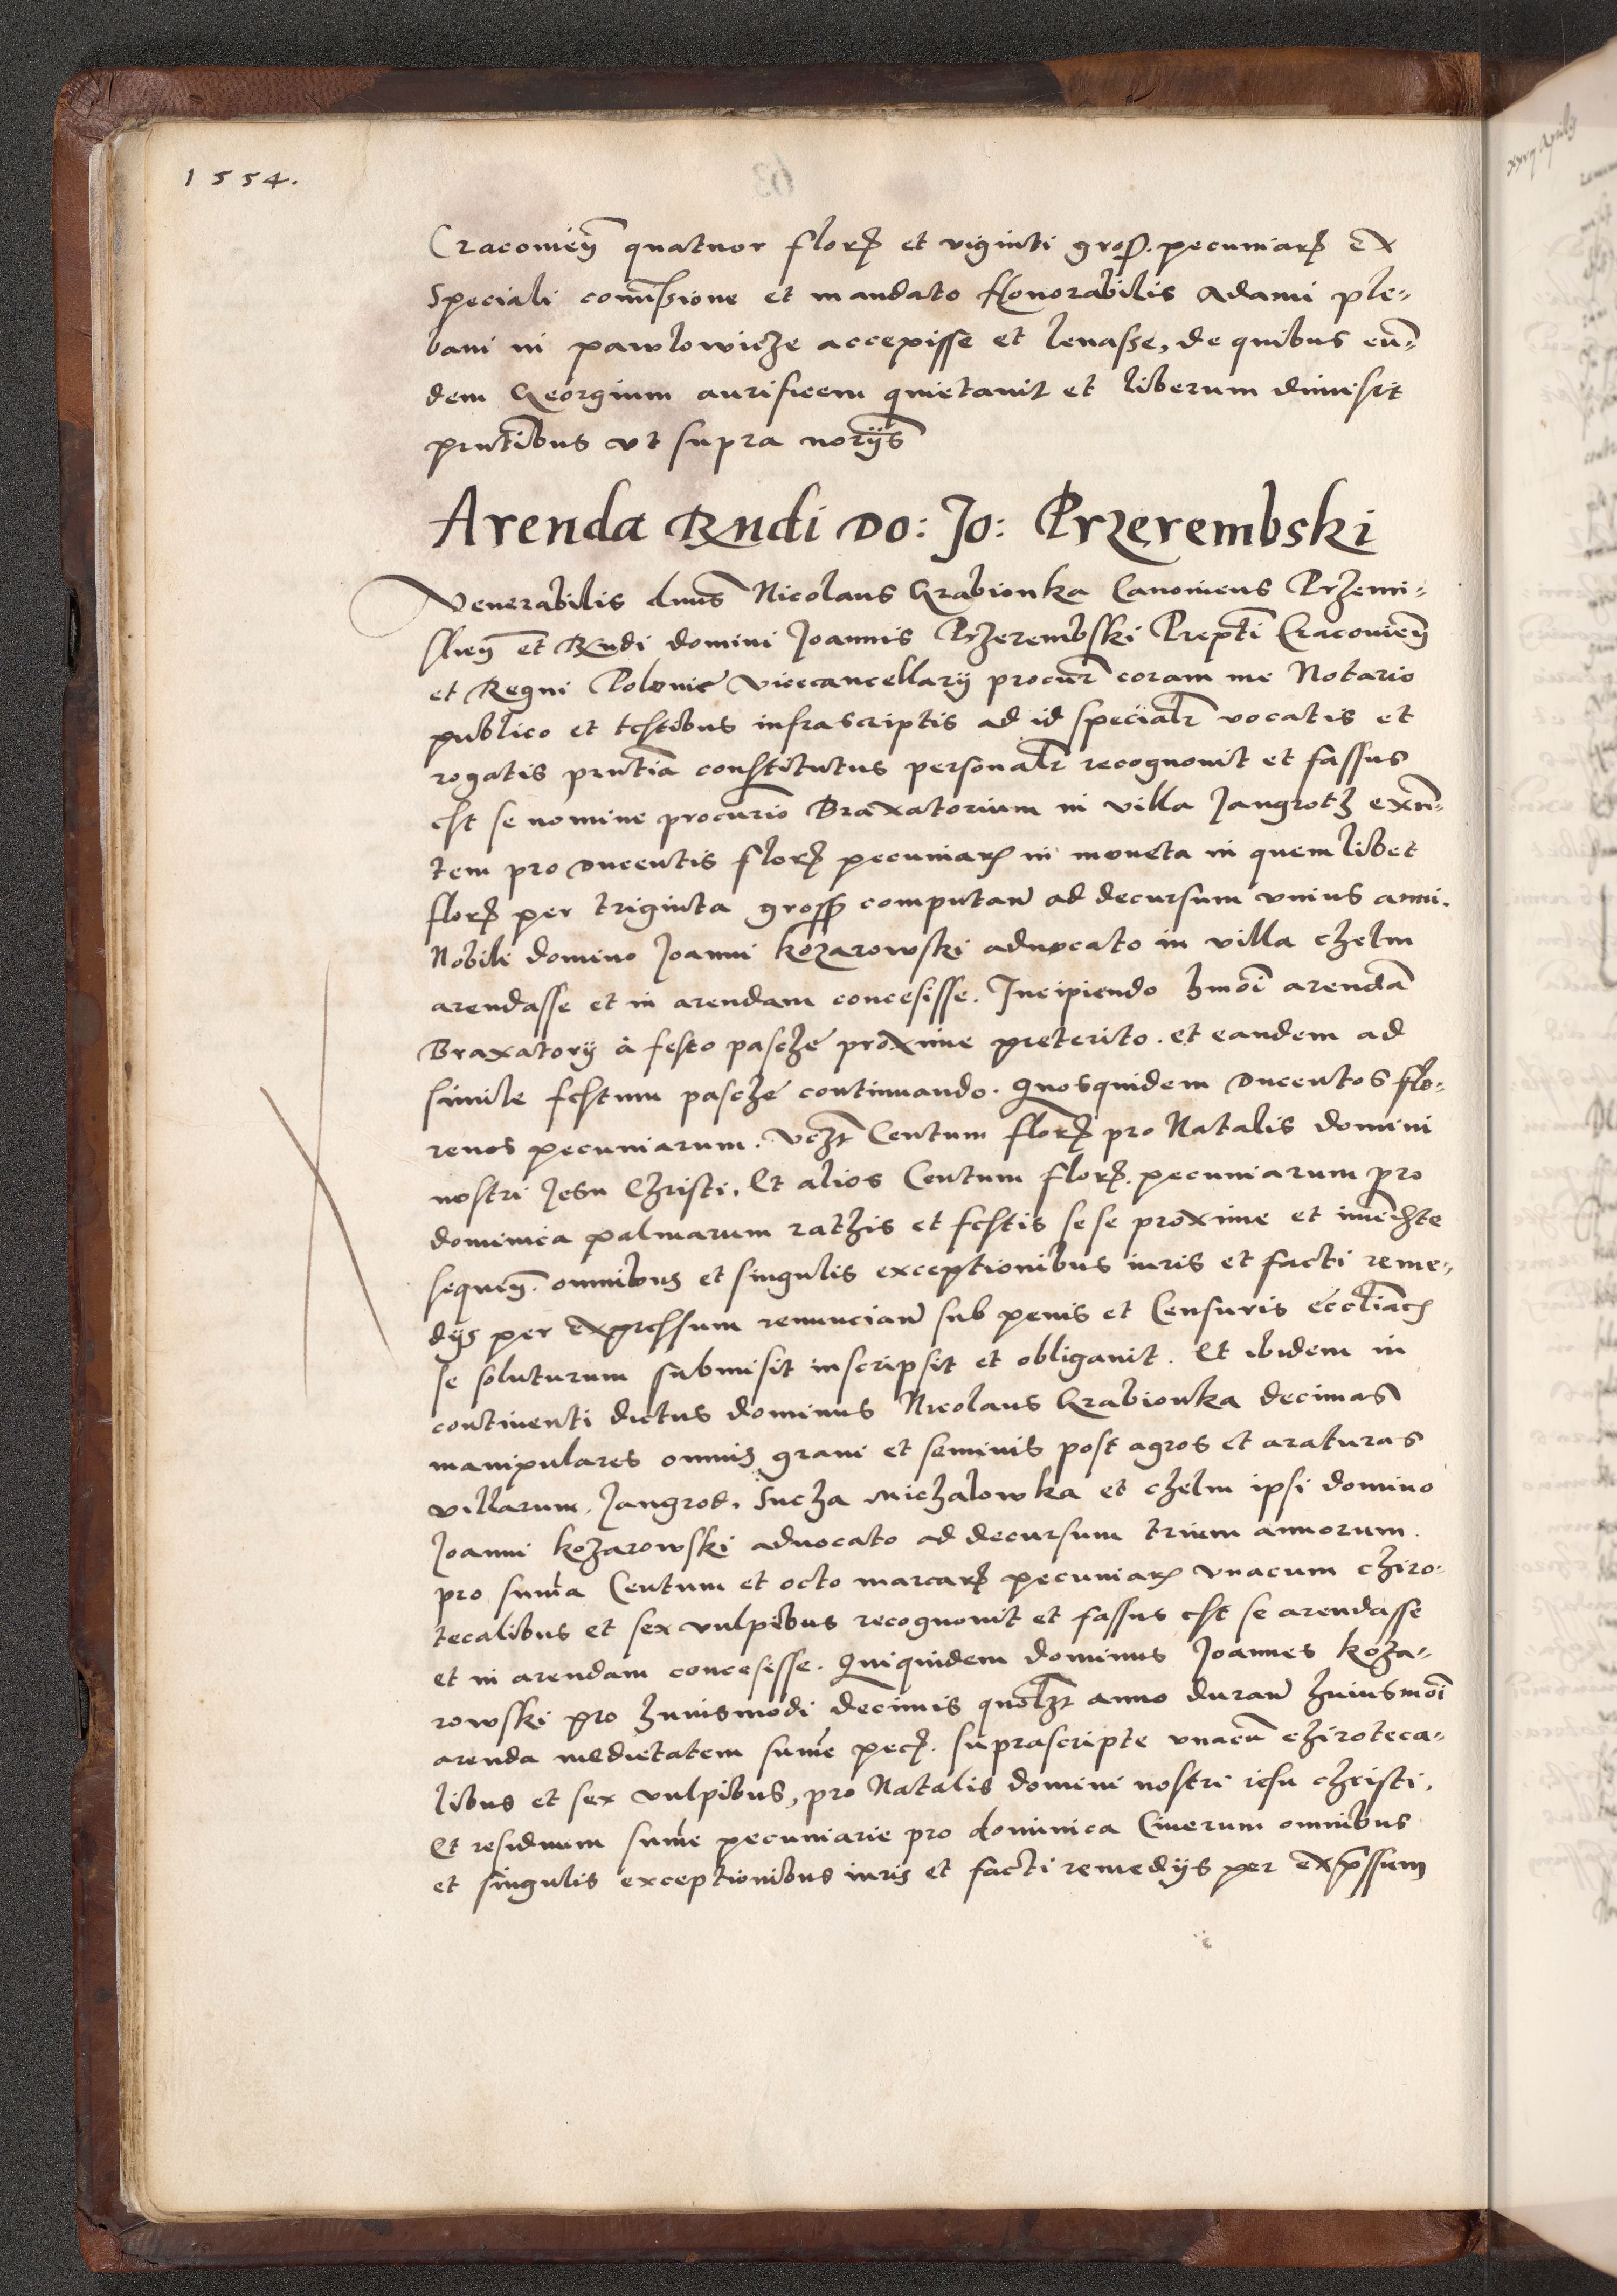 1554.
Cracovien̄ quatuor flor et viginti gross. pecuniar ex
speciali com̄issione et mandato Honorabilis Adami ple-
bani in pawlowicze accepisse et levasse, de quibus eū-
dem Georgium aurificem quietavit et liberum dimisit
pn̄tibus vt supra notijs
Arenda Rndi Do: Jo: Przerembski
Venerabilis dn̄us Nicolaus Grabionka Canonicus Przemi-
slien̄ et Rndi domini Joannis Przerembski Prepti Cracovien̄
et Regni Polonie vicecancellarij procur̄ coram me Notario
publico et testibus infrascriptis ad id specialr̄ vocatis et
rogatis pn̄tia constitutus personalr̄ recognovit et fassus
est se nomine procurio Braxatorium in villa Jangrotz exn̄-
tem pro Ducentis flor pecuniar in moneta in quemlibet
flor per triginta gross computan̄ ad decursum vnius anni.
Nobili domino Joanni Kozarowski advocato in villa chelm
arendasse et in arendam concesisse. Incipiendo hmōi arendā
Braxatorij à festo pasche proxime preterito. et eandem ad
simile festum pasche continuando. Quosquidem Ducentos flo-
renos pecuniarum. vczt Centum flor pro Natalis domini
nostri Jesu Christi. Et alios Centum flor. pecuniarum pro
dominica palmarum rathis et festis sese proxime et im̄ediate
sequen̄. omnibus et singulis exceptionibus iuris et facti reme-
dijs per expressum renuncian̄ sub penis et Censuris ecctiacis
se soluturum submisit inscripsit et obligavit. Et ibidem in
continenti dictus dominus Nicolaus Grabionka decimas
manipulares omnis grani et seminis post agros et araturas
villarum. Jangrod. Sucha Michalowka et chelm ipsi domino
Joanni Kozarowski advocato ad decursum trium annorum.
pro sum̄a Centum et octo marcar pecuniar vnacum chiro-
tecalibus et sex vulpibus recognovit et fassus est se arendasse
et in arendam concesisse. Quiquidem dominus Joannes Koza-
rowski pro huiusmodi decimis quolzt anno duran̄ huiusmōi
arenda medietatem sum̄e pec. suprascripte vnacū chiroteca-
libus et sex vulpibus, pro Natalis domini nostri iesu christi,
Et residuum sum̄e pecuniarie pro dominica Cinerum omnibus
et singulis exceptionibus iuris et facti remedijs per exp̄ssum